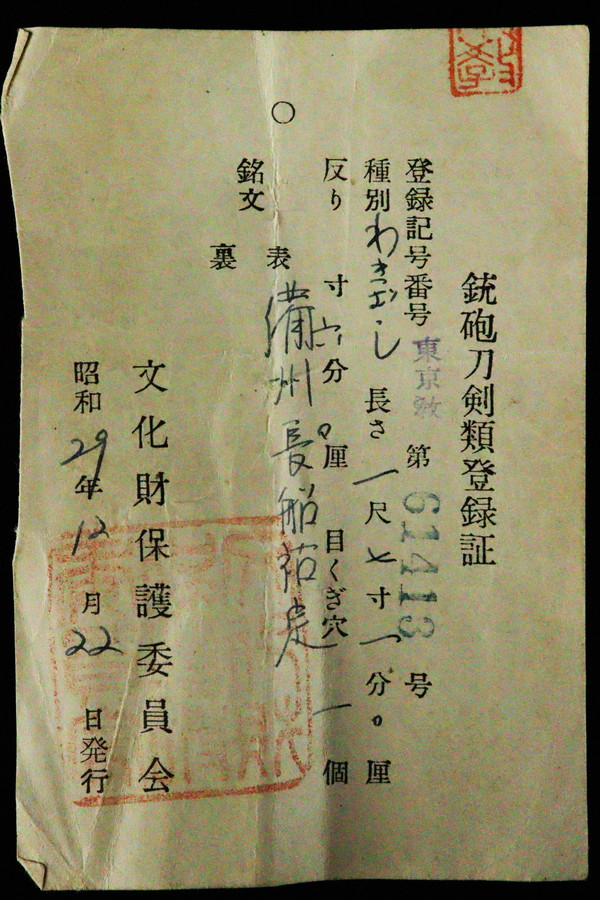 銃砲刀剣類登録証
登録記号番号 東京教 第 61413 号
種別 わきざし 長さ 一尺七寸一分0厘
反り 寸六分0厘 目くぎ穴 一個
銘文 表 備州長船祐定
裏
文化財保護委員会
昭和29年12月22日発行